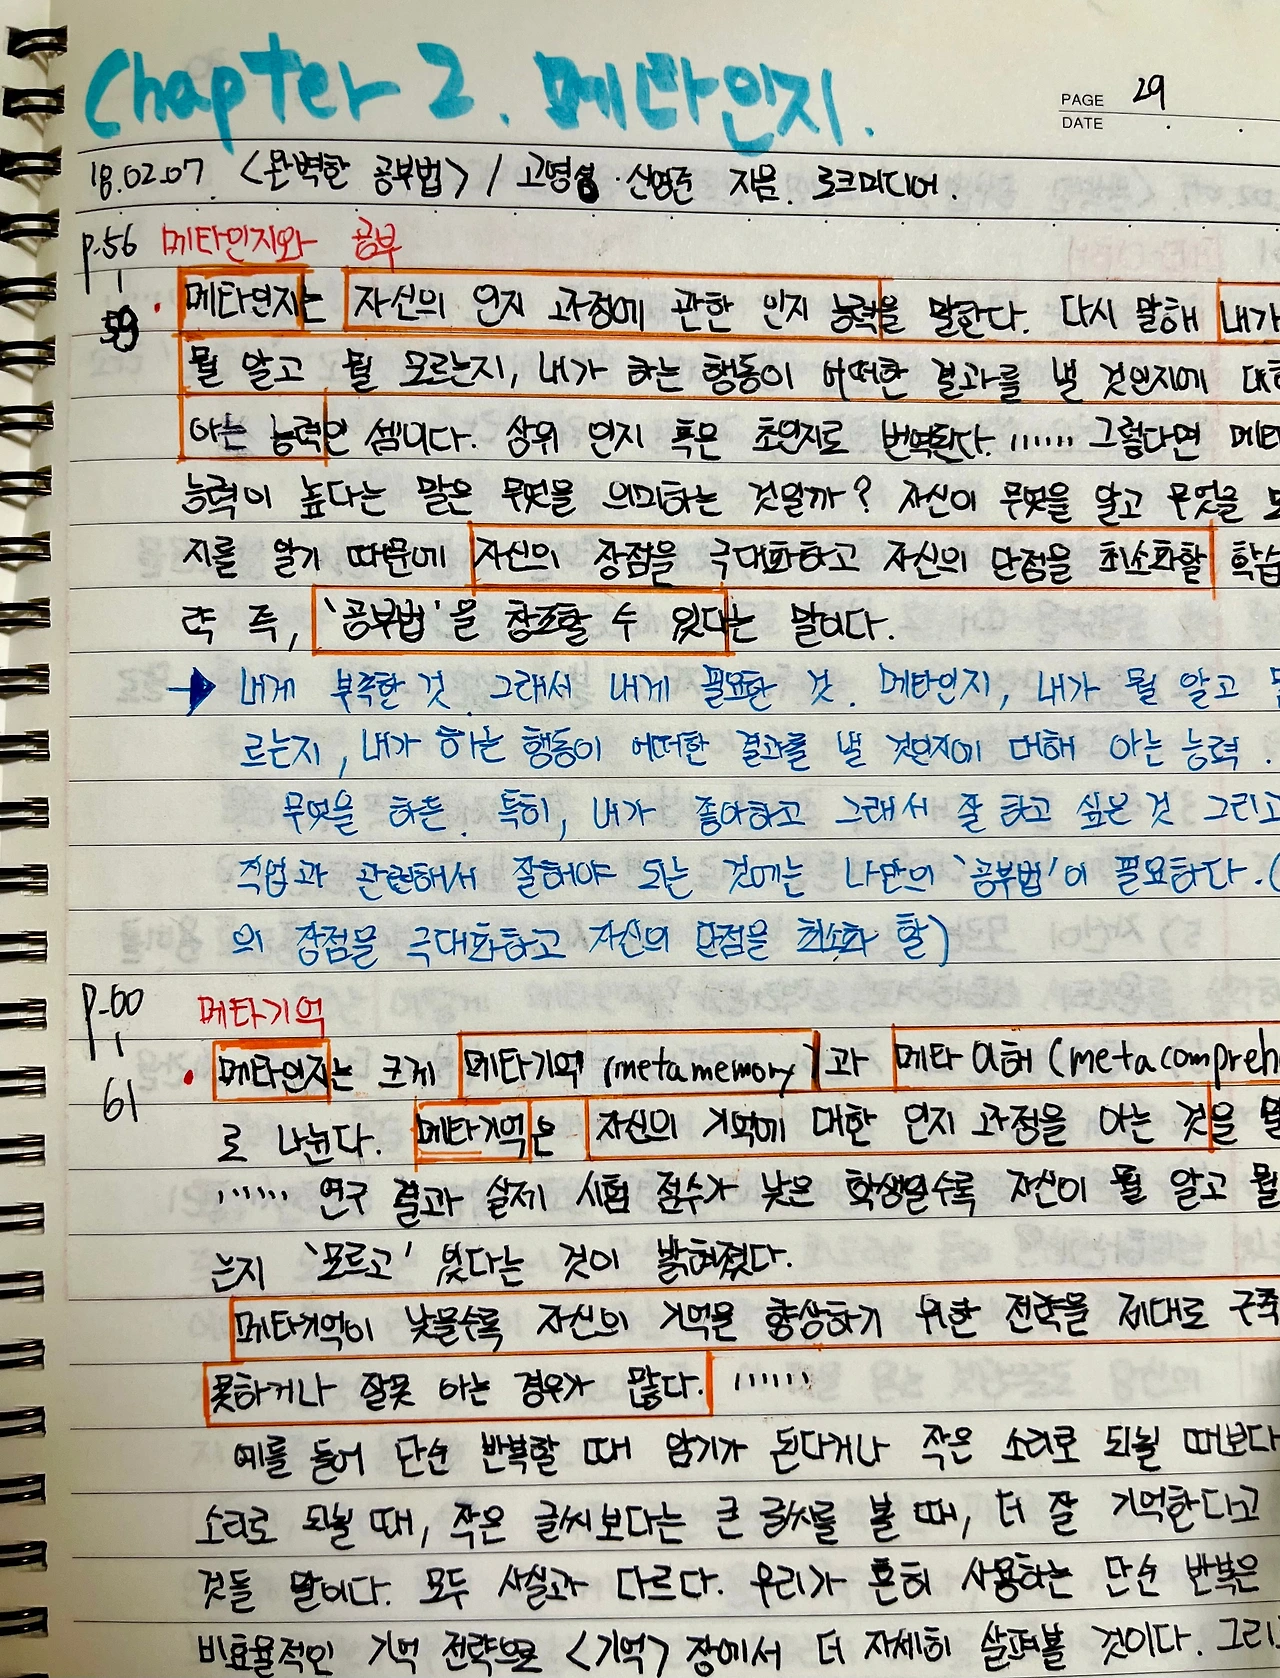 Chapter 2. 메타인지.
PAGE 29
DATE . .
18.02.07. <완벽한 공부법> / 고영성·신영준 지음. 로크미디어.
p.56 메타인지와 공부
59 • 메타인지는 자신의 인지 과정에 관한 인지 능력을 말한다. 다시 말해 내가
뭘 알고 뭘 모르는지, 내가 하는 행동이 어떠한 결과를 낼 것인지에 대해
아는 능력인 셈이다. 상위 인지 혹은 초인지로 번역된다. …… 그렇다면 메타
능력이 높다는 말은 무엇을 의미하는 것일까? 자신이 무엇을 알고 무엇을 모
지를 알기 때문에 자신의 장점을 극대화하고 자신의 단점을 최소화할 학습
략 즉, '공부법'을 창조할 수 있다는 말이다.
→ 내게 부족한 것. 그래서 내게 필요한 것. 메타인지, 내가 뭘 알고 뭘
르는지, 내가 하는 행동이 어떠한 결과를 낼 것인지에 대해 아는 능력.
무엇을 하든. 특히, 내가 좋아하고 그래서 잘 하고 싶은 것 그리고
직업과 관련해서 잘해야 되는 것에는 나만의 '공부법'이 필요하다. (
의 장점을 극대화하고 자신의 단점을 최소화 할)
p.60 메타기억
61 • 메타인지는 크게 메타기억 (metamemory)과 메타이해 (metacompreh
로 나뉜다. 메타기억은 자신의 기억에 대한 인지 과정을 아는 것을 말
…… 연구 결과 실제 시험 점수가 낮은 학생일수록 자신이 뭘 알고 뭘
는지 '모르고' 있다는 것이 밝혀졌다.
메타기억이 낮을수록 자신의 기억을 향상하기 위한 전략을 제대로 구축
못하거나 잘못 아는 경우가 많다. ……
예를 들어 단순 반복할 때 암기가 된다거나 작은 소리로 되뇔 때보다
소리로 되뇔 때, 작은 글씨보다는 큰 글씨를 볼 때, 더 잘 기억한다고
것들 말이다. 모두 사실과 다르다. 우리가 흔히 사용하는 단순 반복은
비효율적인 기억 전략으로 <기억> 장에서 더 자세히 살펴볼 것이다. 그리